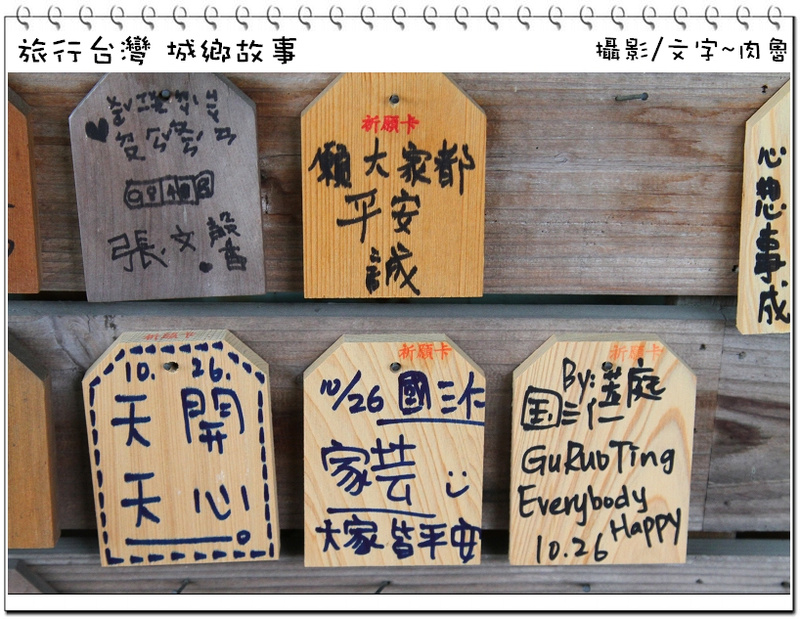 旅行台灣 城鄉故事
攝影/文字~肉魯
張文馨
祈願卡
願大家都
平安
誠
心想事成
祈願卡
10. 26.
天開
天心
祈願卡
10/26 國三仁
家芸
大家皆平安
祈願卡
By: 庭
国三仁
GuRuoTing
Everybody
Happy
10.26